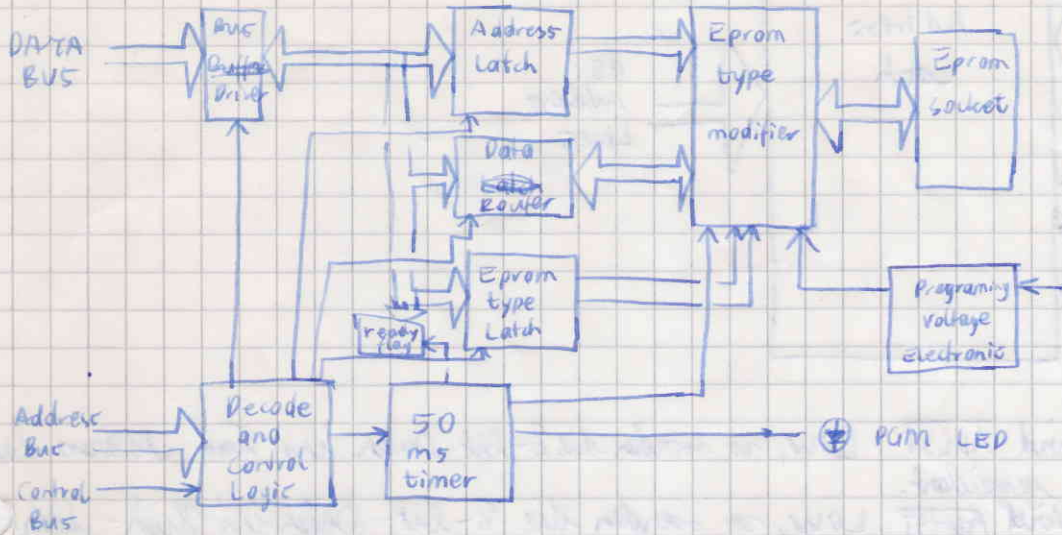 DATA
BUS
Bus
Driver
Address
Latch
Eprom
type
modifier
Eprom
socket
Data
Router
Eprom
type
Latch
ready
flag
Programing
voltage
Electronic
Address
Bus
Control
Bus
Decode
and
Control
Logic
50
ms
timer
PGM LED